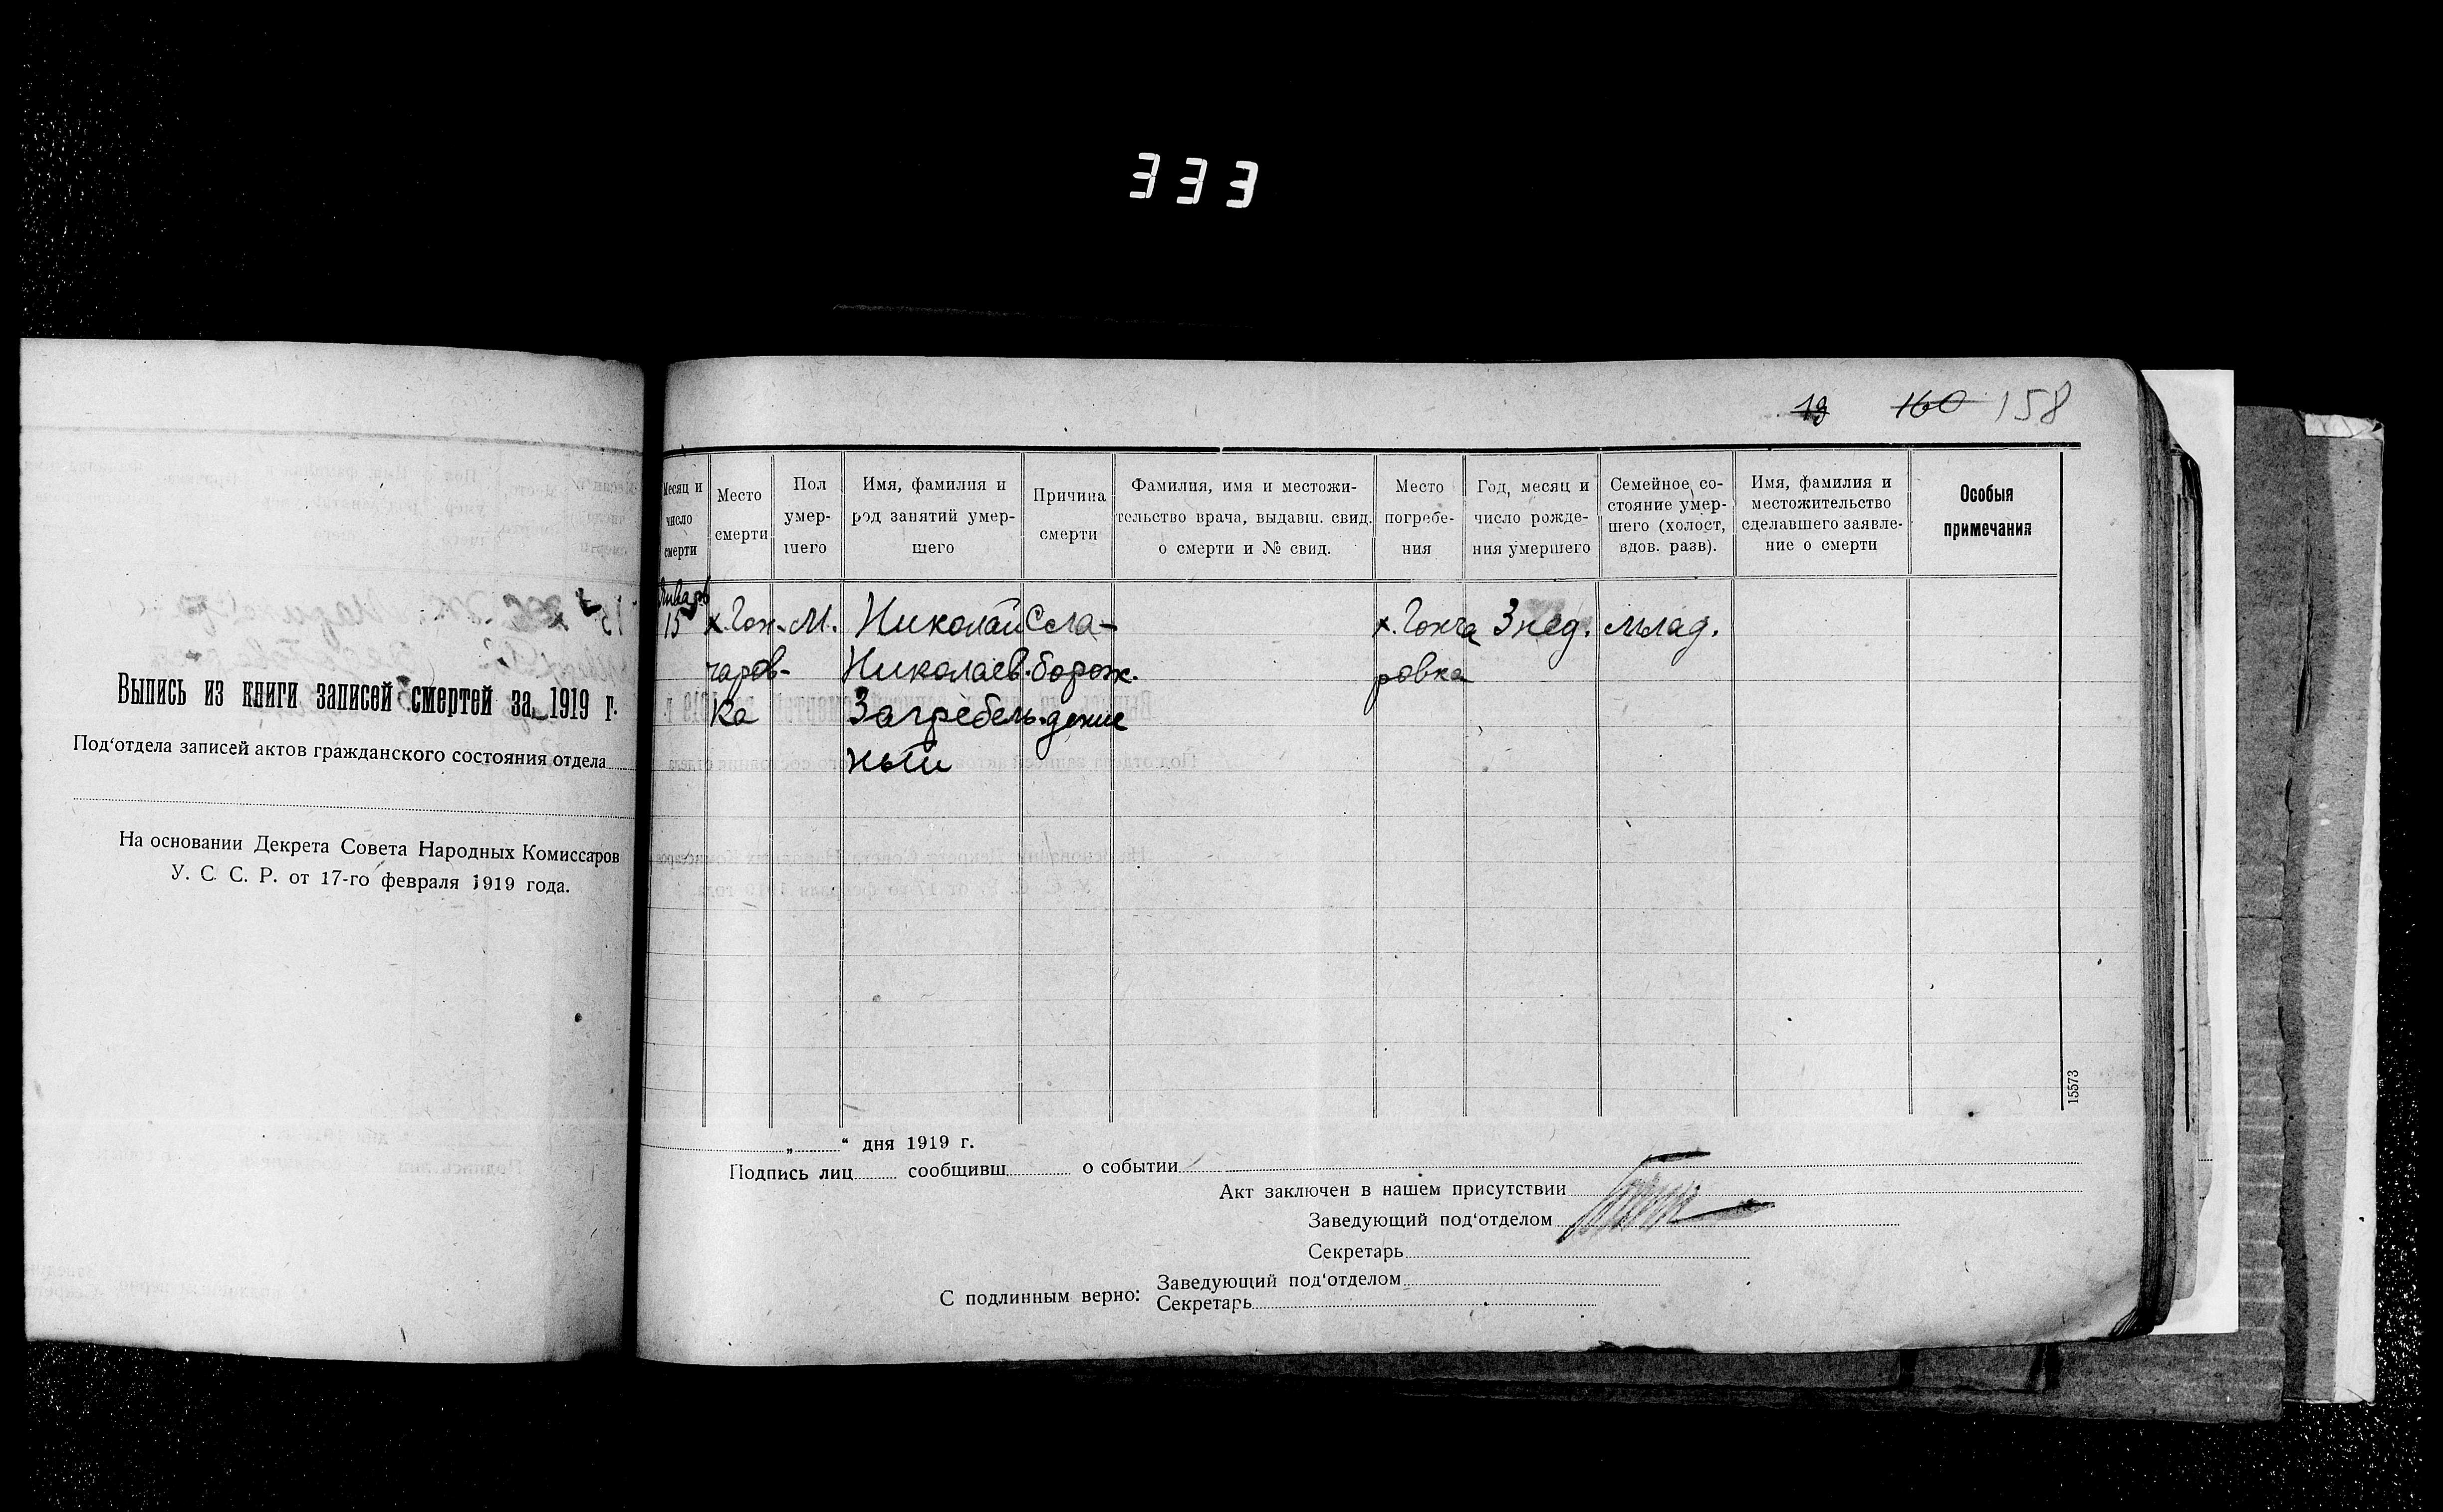 333
Выпись из книги записей смертей за 1919 г.
Под‘отдела записей актов гражданского состояния отдела
На основании Декрета Совета Народных Комиссаров
У. С. С. Р. от 17-го февраля 1919 года.
19 160 158
Месяц и число смерти
Место смерти
Пол умер- шего
Имя, фамилия и род занятий умер- шего
Причина смерти
Фамилия, имя и местожи- тельство врача, выдавш. свид. о смерти и № свид.
Место погребе- ния
Год, месяц и число рожде- ния умершего
Семейное со- стояние умер- шего (холост, вдов. разв).
Имя, фамилия и местожительство сделавшего заявле- ние о смерти
Особыя примечания
Январь
15 х. Гон- М. Николай Сла- х. Гонча 3 нед. млад.
чаров- Николаев. борож. ровка
ка Загребель- дение
ный
15573
„ “ дня 1919 г.
Подпись лиц сообщивш о событии
Акт заключен в нашем присутствии
Заведующий под‘отделом
Секретарь
С подлинным верно:
Заведующий под‘отделом
Секретарь